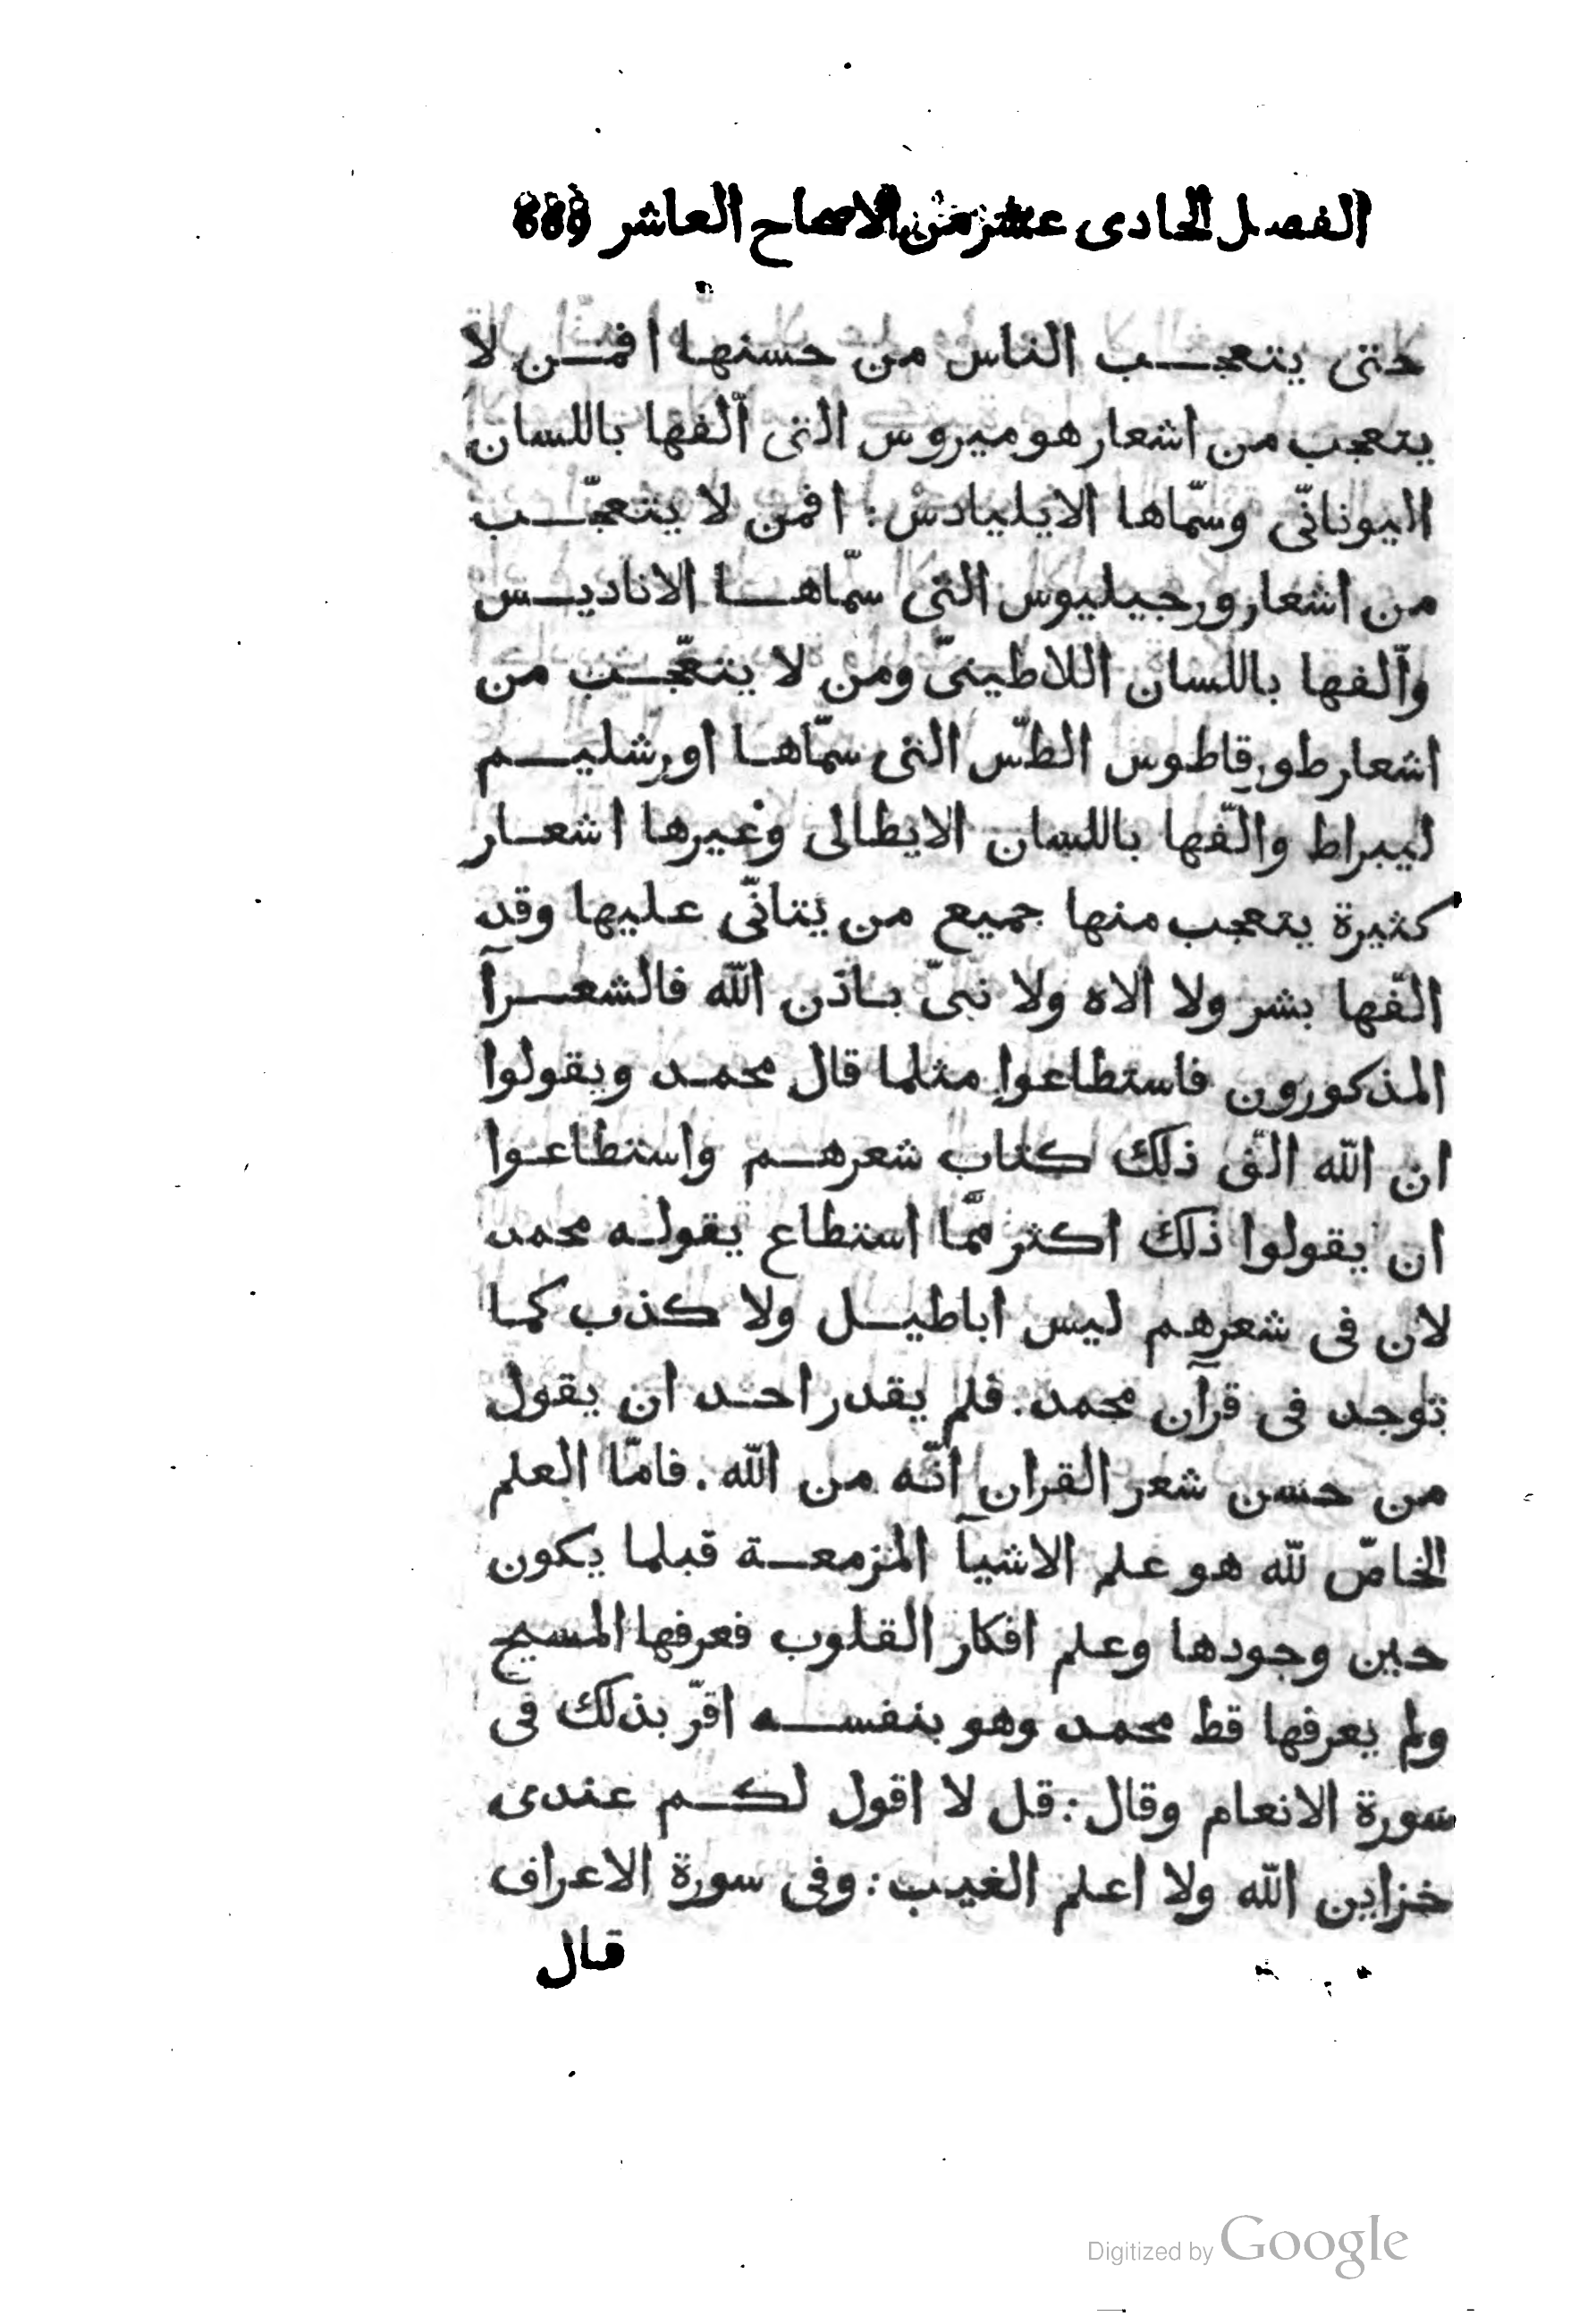 الفصل الحادى عشر من الاصحاح العاشر 889
حتى يتعجب الناس من حسنها افمن لا
يتعجب من اشعار هوميروس التى ألّفها باللسان
اليونانّى وسمّاها الايليادس: افمن لا يتعجّب
من اشعار ورجيليوس التى سمّاها الاناديس
وألّفها باللسان اللاطينىّ ومن لا يتعّجب من
اشعار طورقاطوس الطّس التى سمّاها اورشليم
ليبراط والّفها باللسان الايطالى وغيرها اشعار
كثيرة يتعجب منها جميع من يتانّى عليها وقد
الّفها بشر ولا الاه ولا نبىّ باذن الله فالشعرآ
المذكورون فاستطاعوا مثلما قال محمد ويقولوا
ان الله الّف ذلك كتاب شعرهم واستطاعوا
ان يقولوا ذلك اكثر ممّا استطاع يقوله محمد
لان فى شعرهم ليس اباطيل ولا كذب كما
توجد فى قرآن محمد. فلم يقدر احد ان يقول
من حسن شعر القران انّه من الله. فامّا العلم
الخاصّ لله هو علم الاشيآ المزمعة قبلما يكون
حين وجودها وعلم افكار القلوب فعرفها المسيح
ولم يعرفها قط محمد وهو بنفسه اقرّ بذلك فى
سورة الانعام وقال: قل لا اقول لكم عندى
خزاين الله ولا اعلم الغيب: وفى سورة الاعراف
قال
Digitized by Google